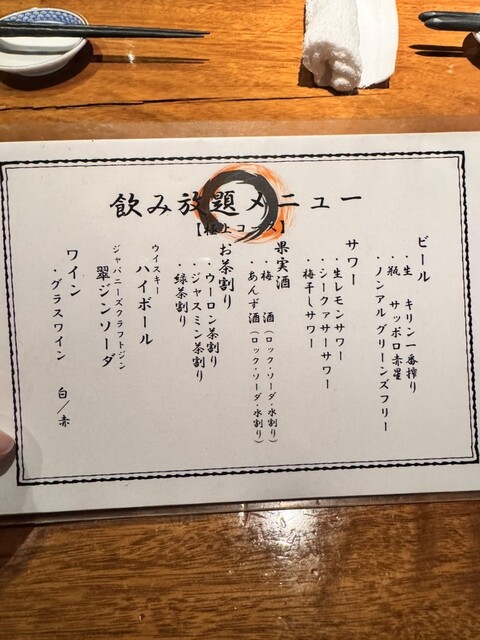 飲み放題メニュー
【極上コース】
ビール
・生 キリン一番搾り
・瓶 サッポロ赤星
・ノンアル グリーンズフリー
サワー
・生レモンサワー
・シークァサーサワー
・梅干しサワー
果実酒
・梅 酒(ロック・ソーダ・水割り)
・あんず酒(ロック・ソーダ・水割り)
お茶割り
・ウーロン茶割り
・ジャスミン茶割り
・緑茶割り
ウイスキー
ハイボール
ジャパニーズクラフトジン
翠ジンソーダ
ワイン
・グラスワイン 白／赤